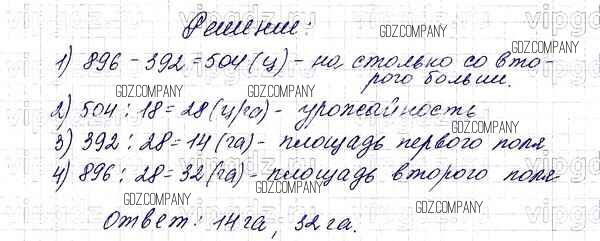 Решение:
1) 896 - 392 = 504 (ц) - на столько со вто-
рого больше.
2) 504 : 18 = 28 (ц/га) - урожайность
3) 392 : 28 = 14 (га) - площадь первого поля
4) 896 : 28 = 32 (га) - площадь второго поля
Ответ: 14 га, 32 га.
GDZ.COMPANY
GDZ.COMPANY
GDZ.COMPANY
GDZ.COMPANY
GDZ.COMPANY
GDZ.COMPANY
GDZ.COMPANY
GDZ.COMPANY
GDZ.COMPANY